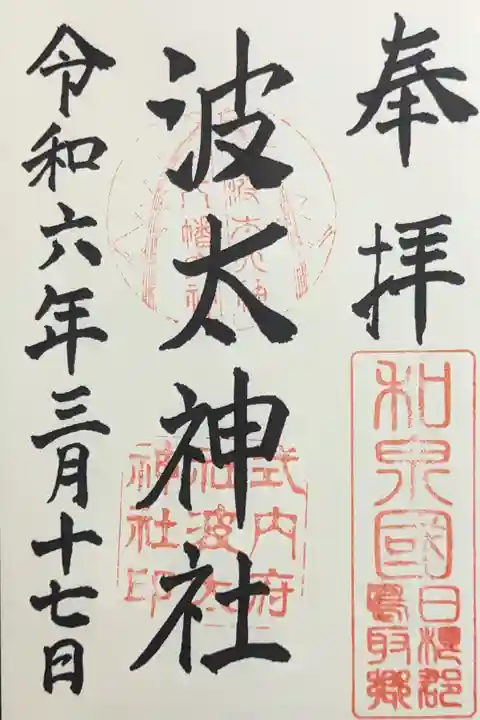 奉拝
和泉國
日根郡
鳥取郷
波太神社
波太神
八幡神
式内府
社波太
神社印
令和六年三月十七日